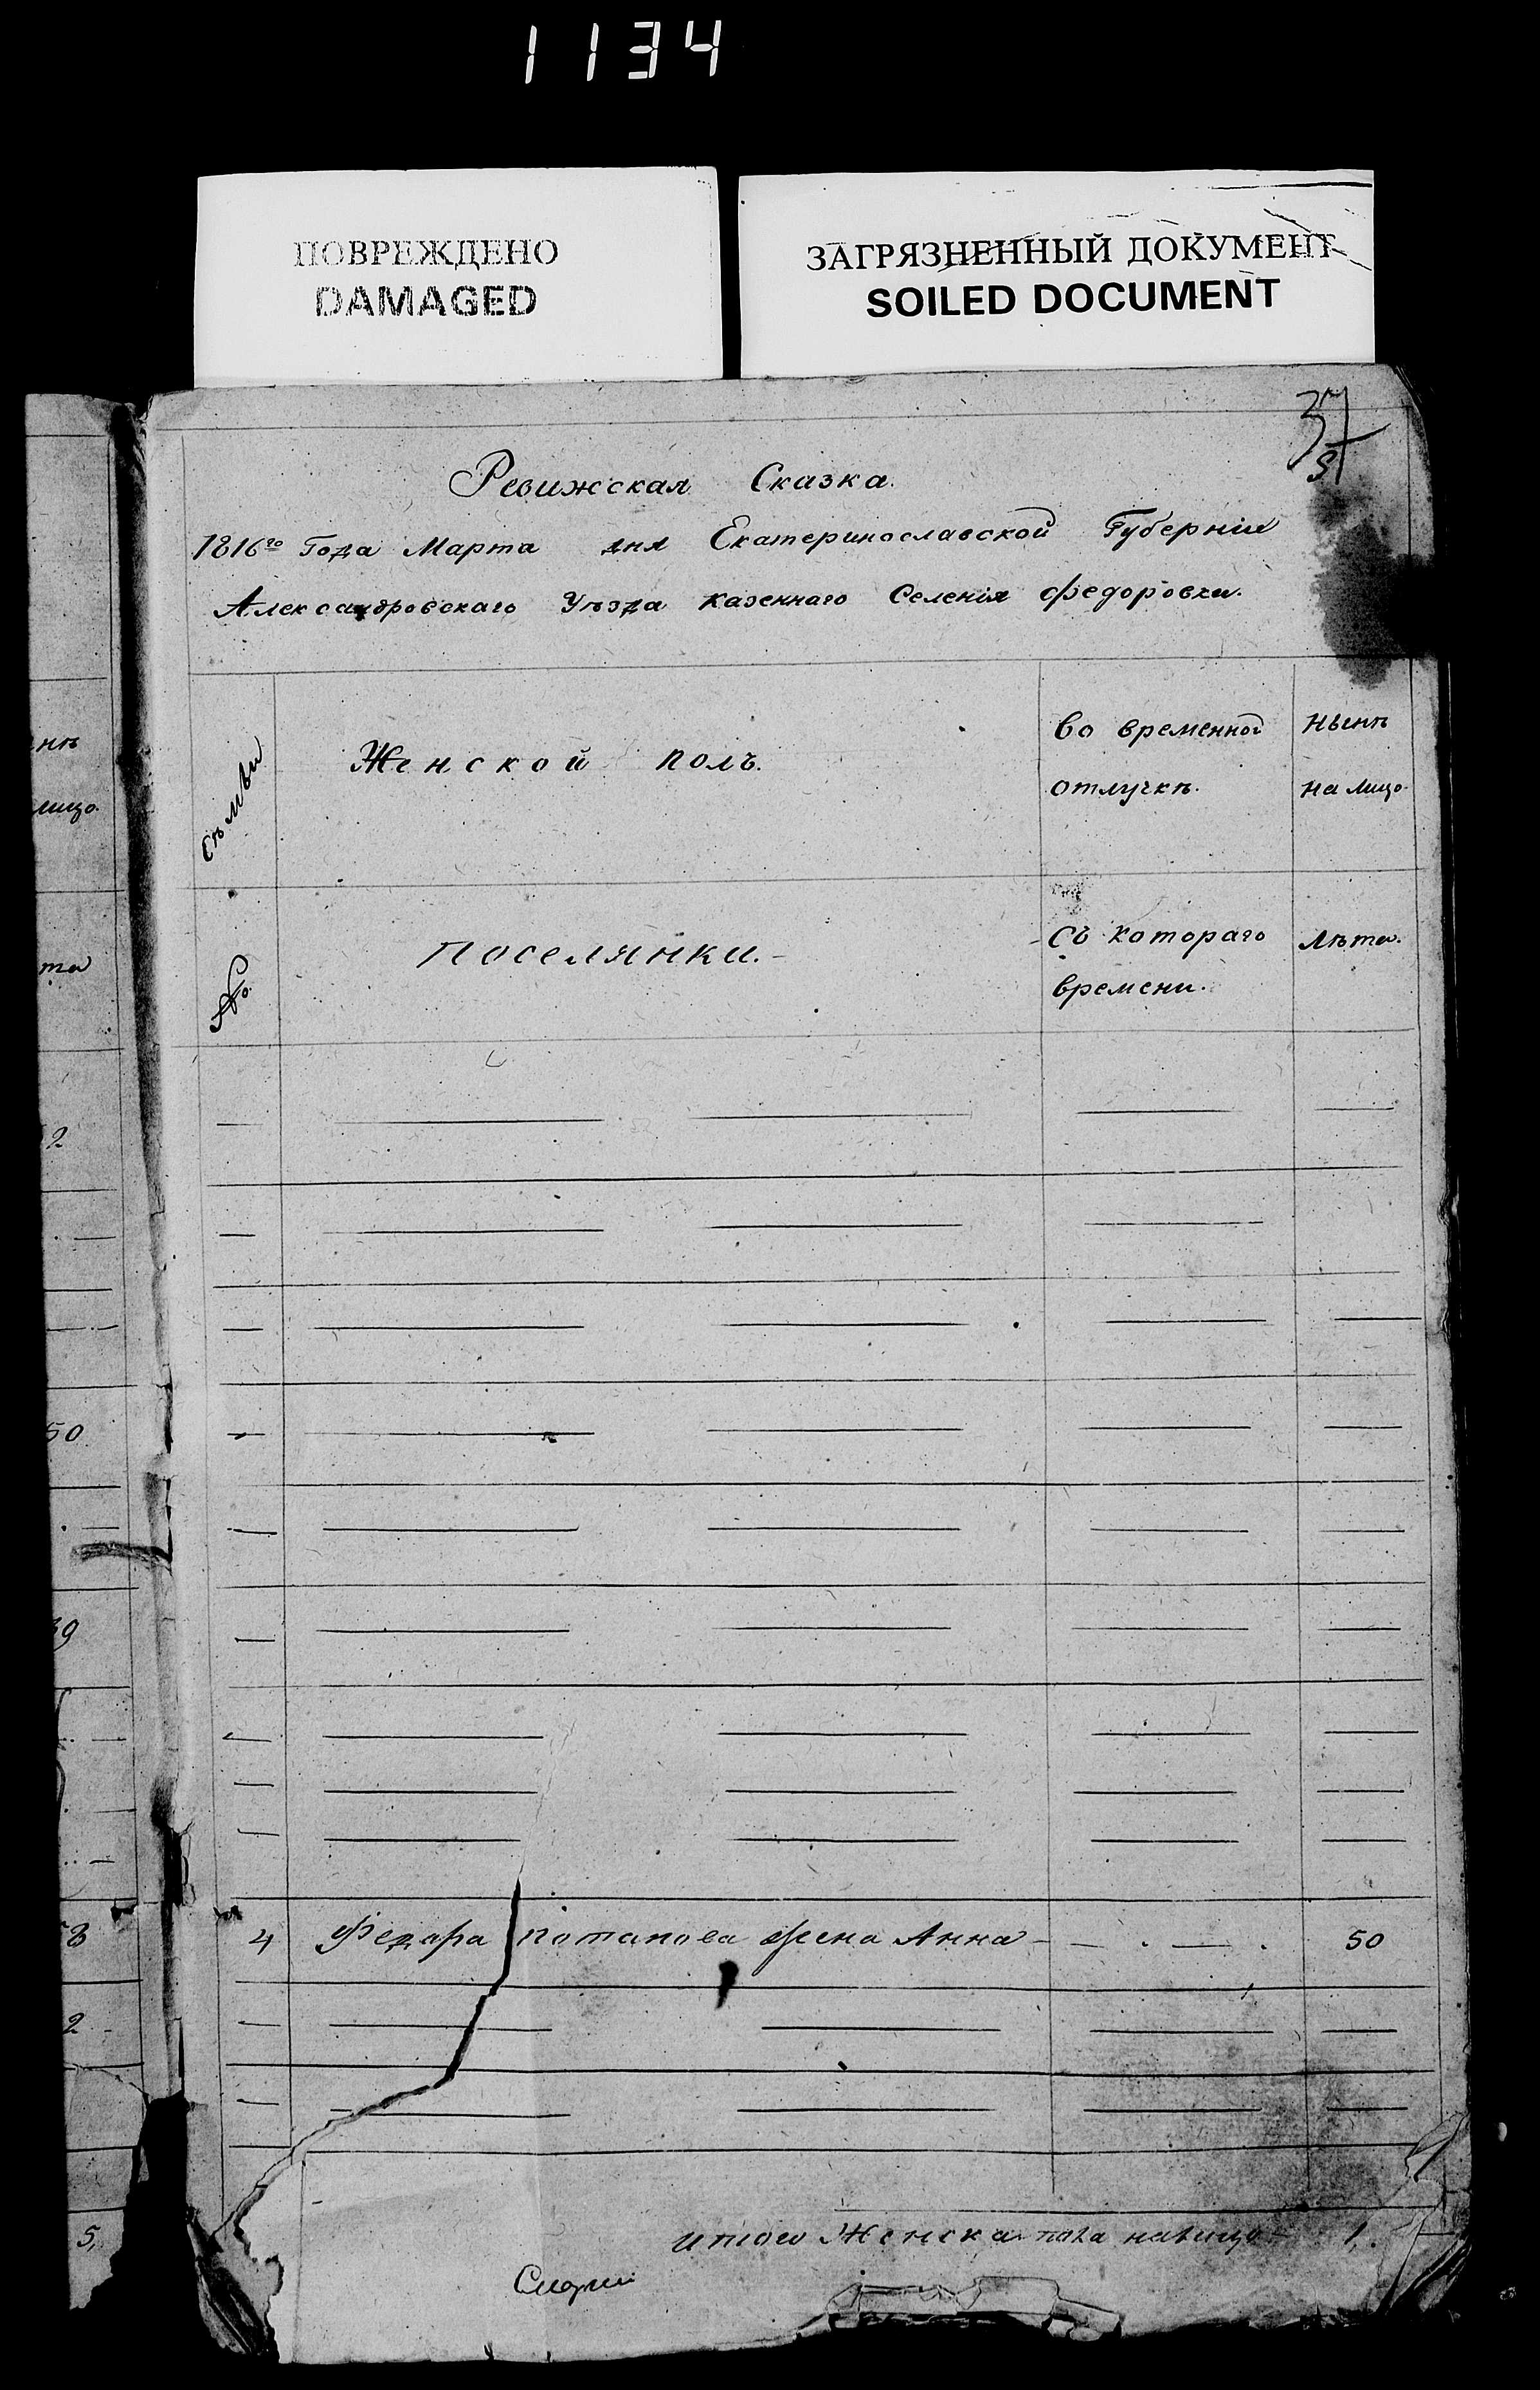 1134
ПОВРЕЖДЕНО
DAMAGED
ЗАГРЯЗНЕННЫЙ ДОКУМЕНТ
SOILED DOCUMENT
37
Ревижская Сказка.
1816го Года Марта дня Екатеринославской Губерніи
Александровскаго Уѣзда казеннаго Селенія Федоровки.
№ Сѣмьи
Женской полъ.
во временной
отлучкѣ.
нынѣ
на лицо.
поселянки.
Съ котораго
времени.
лѣта.
4 Федора Потапова жена Анна 50
итого Женска пола налицо 1.
нѣ
лицо.
та
2
50
39
8
2
5,